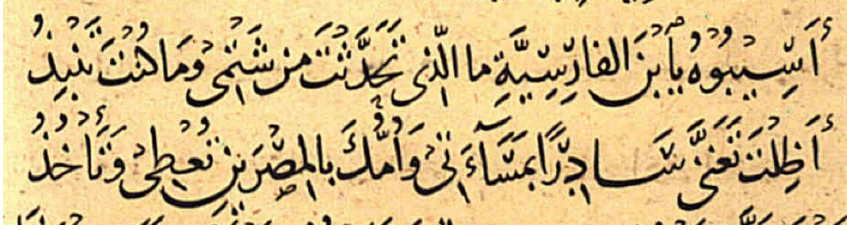 أَسِيبَوُهُ يَا بْنَ الفَارِسِيَّةِ مَا الَّذِي تَحَدَّثْتَ مِنْ شَتْمِي وَمَا كُنْتَ تَنْبِذُ
أَظِلْتَ تَغَنَّى سَادِرًا بِمَسَاءَتِي وَأُمُّكَ بِالمِصْرَيْنِ تُعْطِي وَتَأْخُذُ